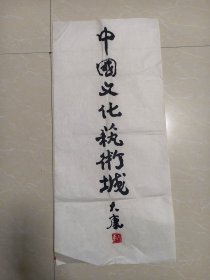 中國文化藝術城
大康